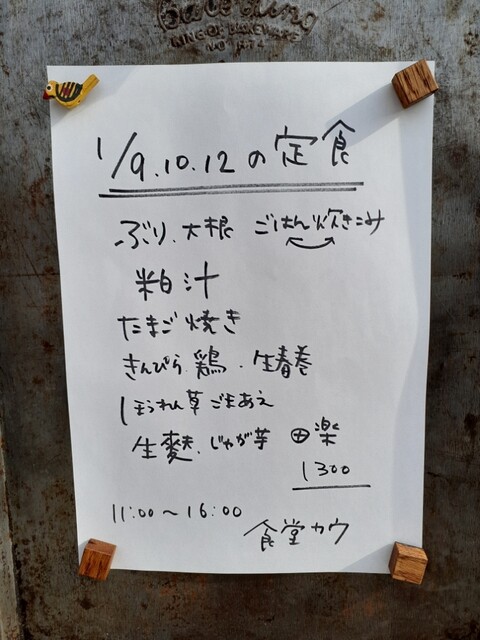 1/9.10.12の定食
ぶり、大根 ごはん炊きこみ
粕汁
たまご焼き
きんぴら、鶏、生春巻
ほうれん草ごまあえ
生麩、じゃが芋 田楽
1300
11:00～16:00
食堂カウ